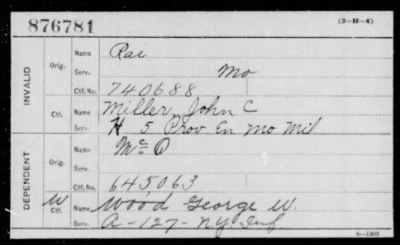 876781 (3-H-4)
INVALID
Orig. Name Rai
Serv. Mo
Ctf. No. 740688
Ctf. Name Miller, John C
Serv. H 5 Prov En Mo Mil
DEPENDENT
Orig. Name McO
Serv.
Ctf. No. 645063
W Ctf. Name Wood George W.
Serv. A-127-NY. Inf